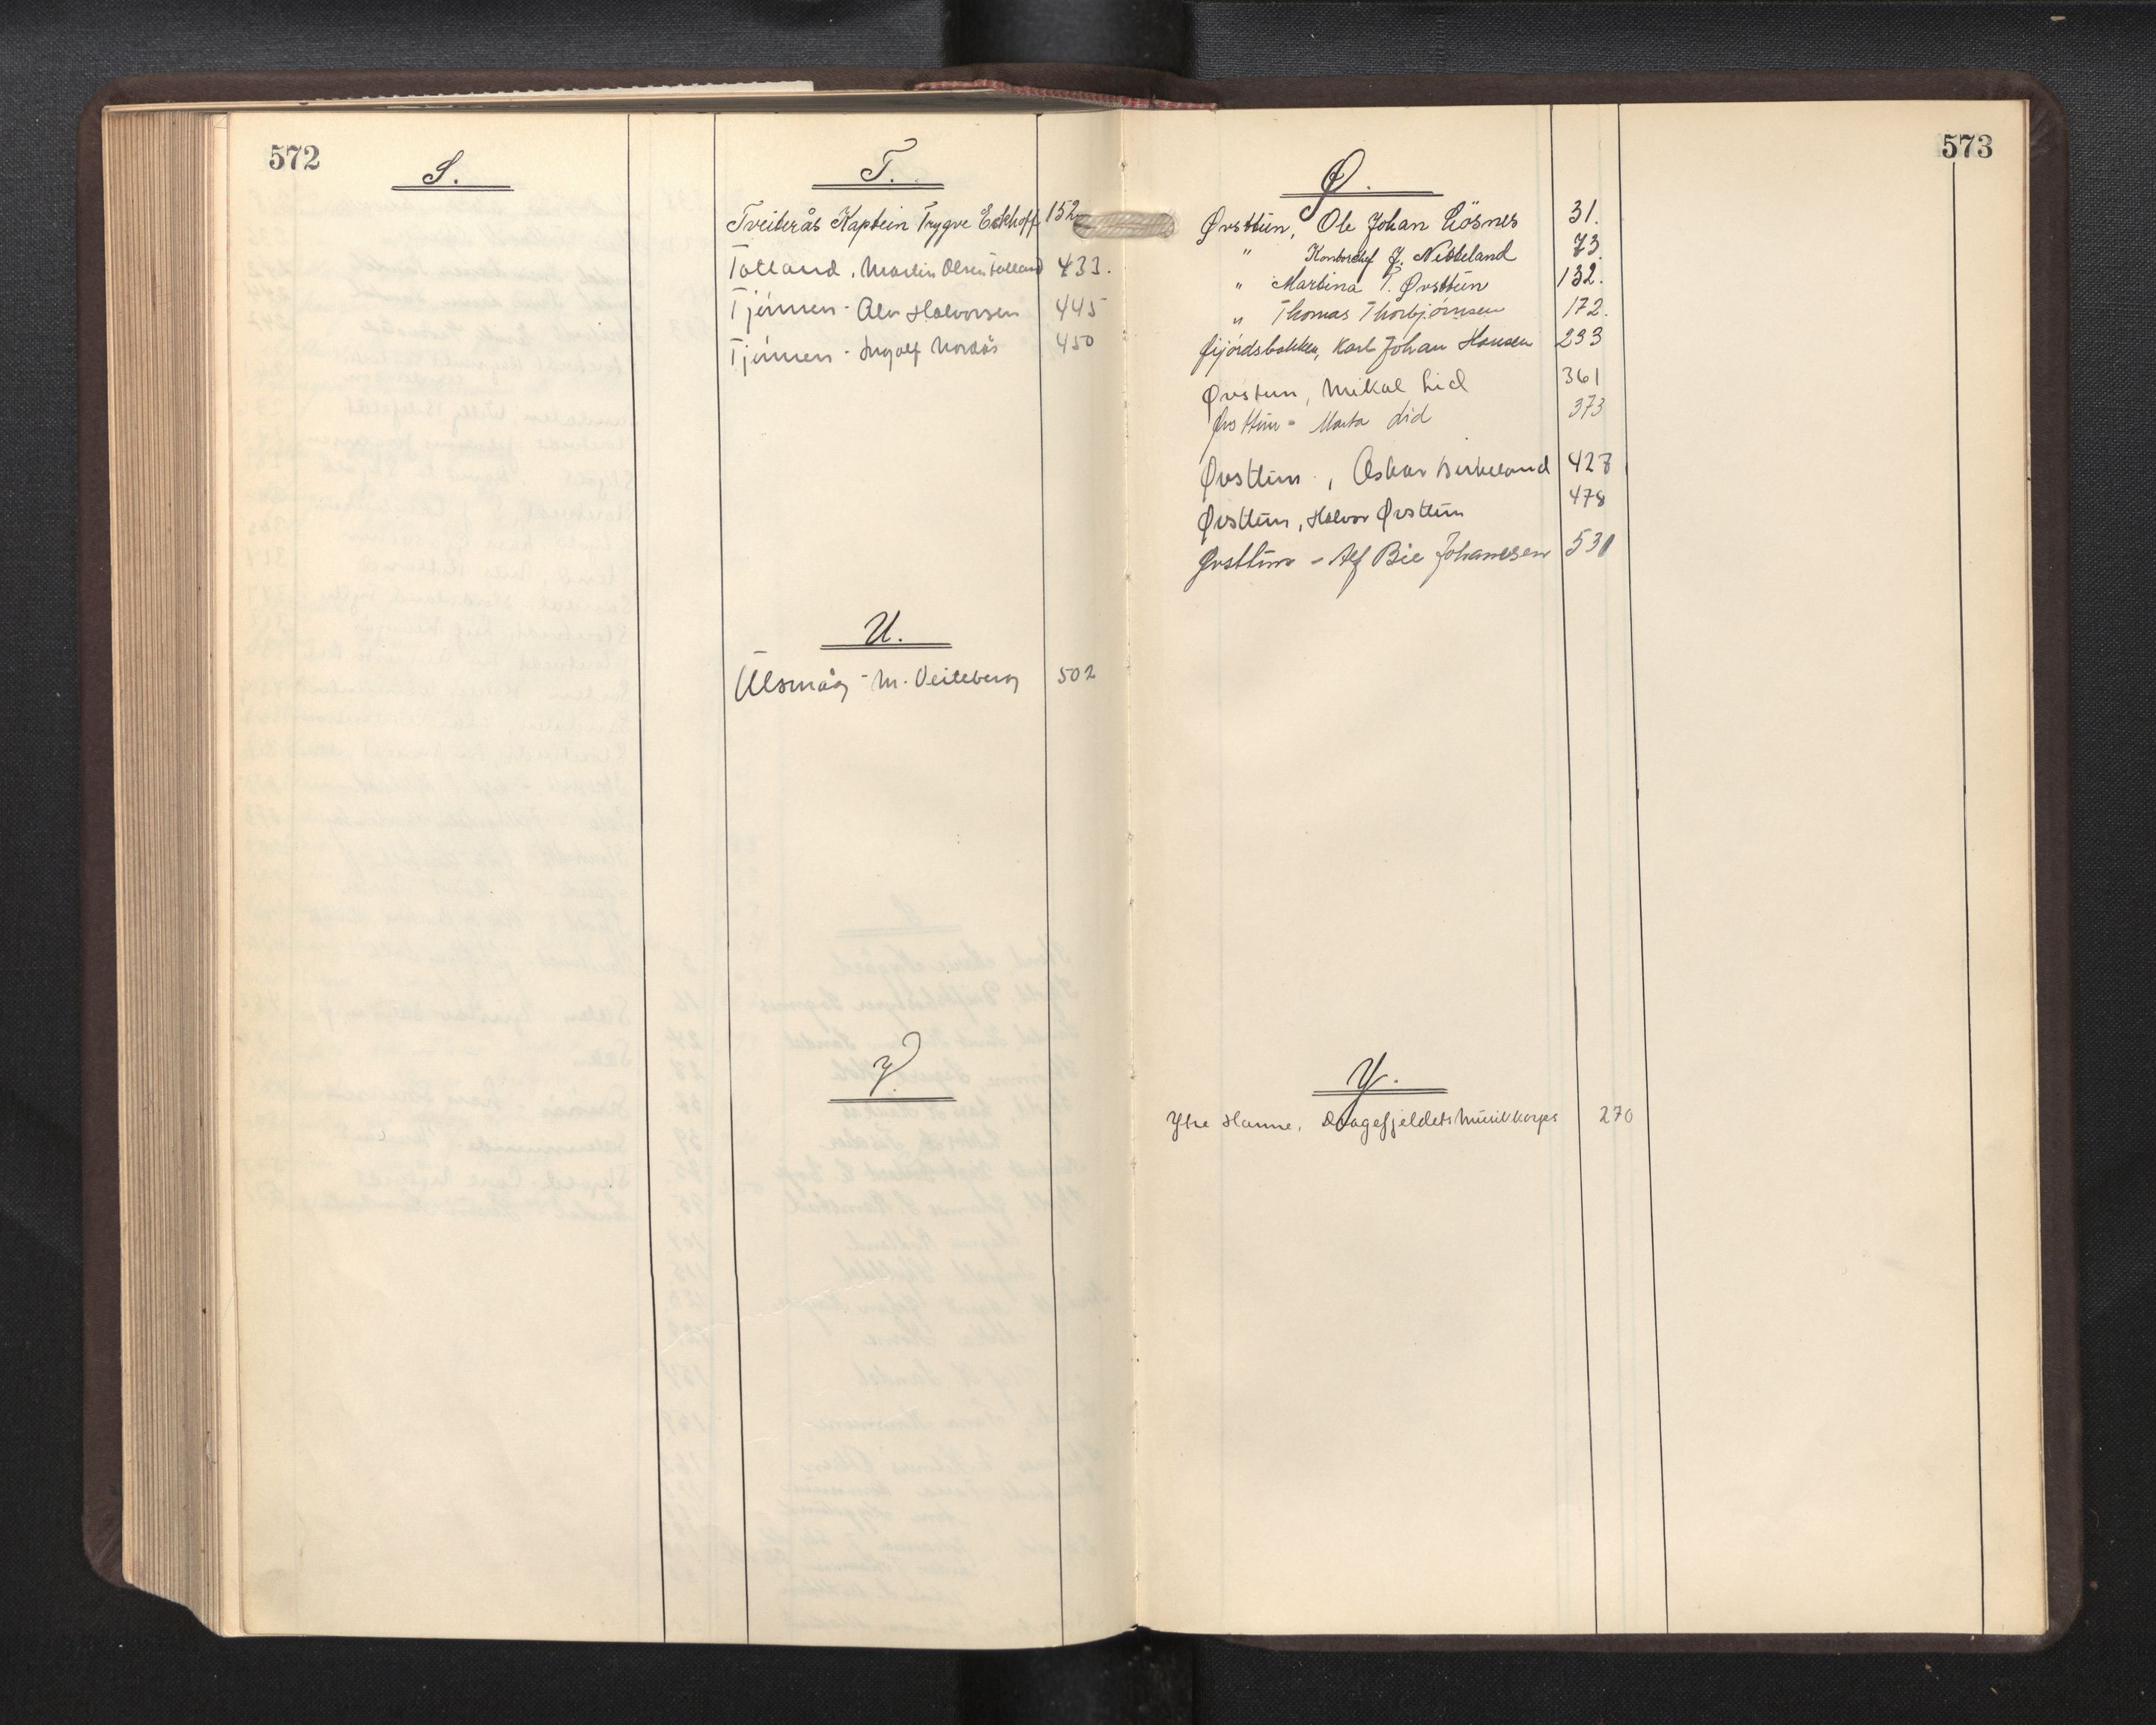 572
S.
T.
Tveiterås Kaptein Trygve Eckhoff 152
Totland, Martin Olsen Totland 433.
Tjønnen - Alv Halvorsen 445
Tjønnen - Ingolf Nordås 450
U.
Ulsmåg - M. Veiteberg 502
Y.
573
Ø.
Øvsttün, Ole Johan Løsnes 31.
" Kontorchef J. Nesteland 73.
" Martina T. Øvsttün 132.
" Thomas Thorbjørnsen 172.
Øijordsbakken, Karl Johan Hansen 233
Øvstun, Mikal Lid 361
Øvsttün - Marta Lid 373
Øvsttün, Oskar Birkeland 427
Øvsttün, Halvor Øvsttün 478
Øvsttün - Alf Bie Johannesen 531
Y.
Ytre Hamre, Dragefjeldets Musikkorps 270